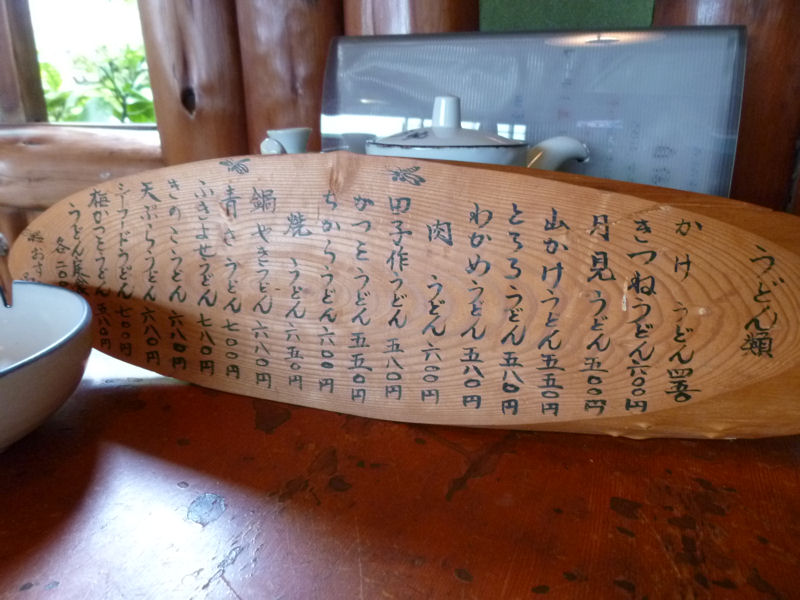 うどん類
かけうどん四五〇
きつねうどん六〇〇円
月見うどん五〇〇円
山かけうどん五五〇円
とろろうどん五八〇円
わかめうどん五八〇円
肉うどん六〇〇円
田子作うどん五八〇円
かつとうどん五五〇円
ちからうどん六〇〇円
焼うどん六五〇円
鍋やきうどん六八〇円
青さうどん七〇〇円
ふきよせうどん七八〇円
きのこうどん六八〇円
天ぷらうどん六八〇円
シーフードうどん七〇〇円
梅かつとうどん五八〇円
うどん
各二〇〇
おす